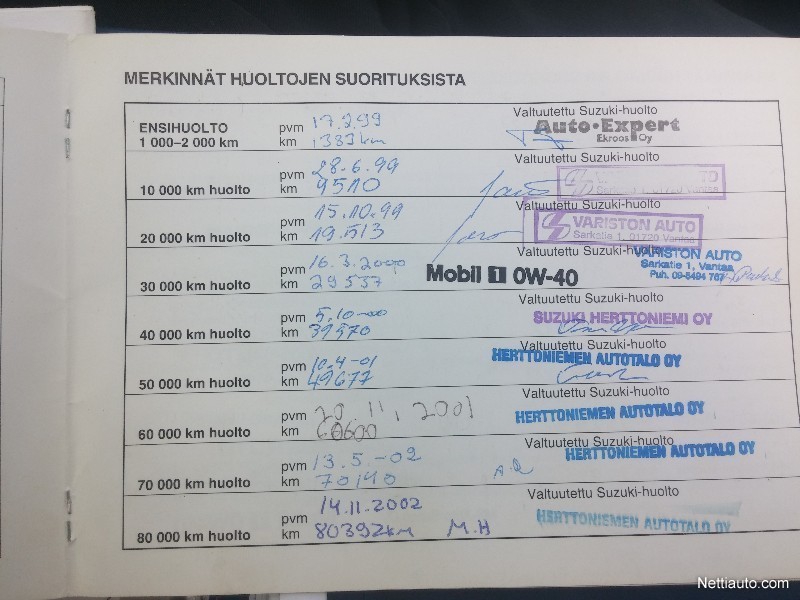 MERKINNÄT HUOLTOJEN SUORITUKSISTA
ENSIHUOLTO
1 000–2 000 km
pvm 17.2.99
km 1383 km
Valtuutettu Suzuki-huolto
Auto•Expert
Ekroos Oy
10 000 km huolto
pvm 28.6.99
km 9510
Valtuutettu Suzuki-huolto
Sarkatie 1, 01720 Vantaa
20 000 km huolto
pvm 15.10.99
km 19.513
Valtuutettu Suzuki-huolto
VARISTON AUTO
Sarkatie 1, 01720 Vantaa
30 000 km huolto
pvm 16.3.2000
km 29537
Mobil 1 0W-40
Valtuutettu Suzuki-huolto
VARISTON AUTO
Sarkatie 1, Vantaa
Puh. 09-8494 767
40 000 km huolto
pvm 5.10-00
km 39570
Valtuutettu Suzuki-huolto
SUZUKI HERTTONIEMI OY
50 000 km huolto
pvm 10.4-01
km 49677
Valtuutettu Suzuki-huolto
HERTTONIEMEN AUTOTALO OY
60 000 km huolto
pvm 20.11.2001
km 60600
Valtuutettu Suzuki-huolto
HERTTONIEMEN AUTOTALO OY
70 000 km huolto
pvm 13.5.-02
km 70140
Valtuutettu Suzuki-huolto
HERTTONIEMEN AUTOTALO OY
80 000 km huolto
pvm 14.11.2002
km 80392km M.H
Valtuutettu Suzuki-huolto
HERTTONIEMEN AUTOTALO OY
Nettiauto.com